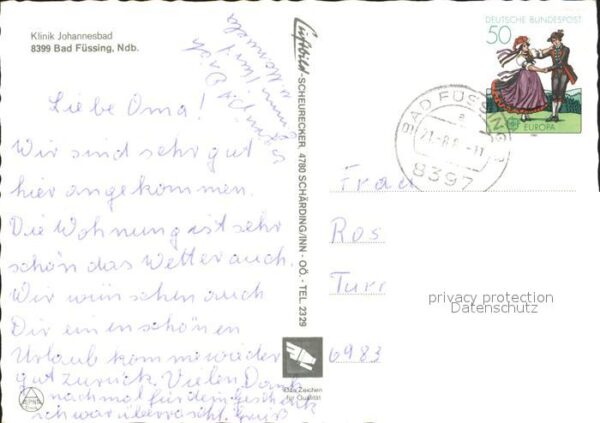 Klinik Johannesbad
8399 Bad Füssing, Ndb.
Liebe Oma!
Wir sind sehr gut
hier angekommen.
Die Wohnung ist sehr
schön das Wetter auch.
Wir wünschen auch
Dir einen schönen
Urlaub komm wieder
gut zurück. Vielen Dank
nochmal für dein Geschenk
ich war überrascht. Gruß
Luftbild-SCHEURECKER, 4780 SCHÄRDING/INN - OÖ. - TEL. 2329
Das Zeichen
für Qualität
DEUTSCHE BUNDESPOST
50
EUROPA
BAD FÜSSING
8397
Frau
Ros
Turr
6983
privacy protection
Datenschutz